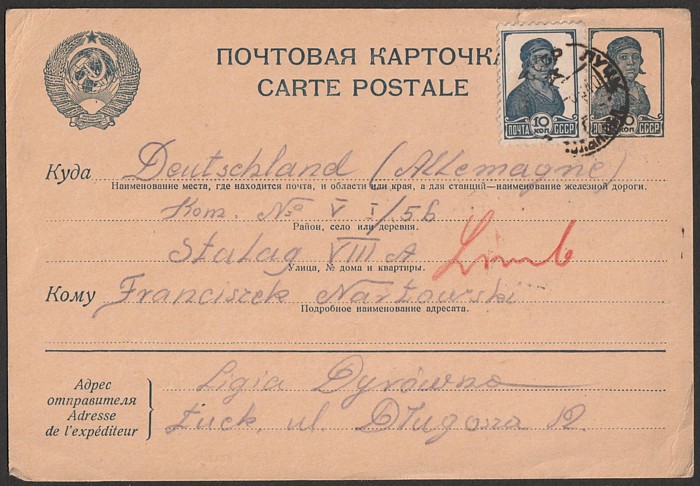 ПОЧТОВАЯ КАРТОЧКА
CARTE POSTALE
10 КОП
ПОЧТА СССР
ЛУЦК
Куда Deutschland (Allemagne)
Наименование места, где находится почта, и области или края, а для станций—наименование железной дороги.
Kom. No V I/56
Район, село или деревня.
Stalag VIII A Limb
Улица, № дома и квартиры.
Кому Franciszek
Подробное наименование адресата.
Адрес отправителя
Adresse de l'expéditeur
Ligia
Łuck, ul. Długosza 12.